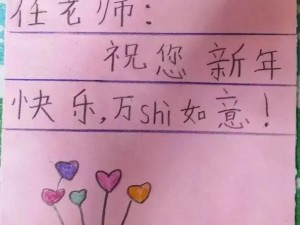 任老师:
祝您新年
快乐,万shì如意!